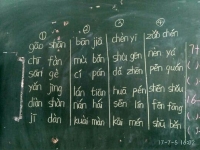 ① ② ③ ④
gāo shān bān jiā chèn yī zǎo chén
chī fàn mù bǎn shù gēn nèn yá
sān gè cí pán dǎ zhēn pēn quán
yǎn jing lán tiān huā pén shēn shǒu
diàn shàn nán hái sēn lín fēn fāng
jī dàn kuài màn kāi mén shū běn
17-7-5 16:02